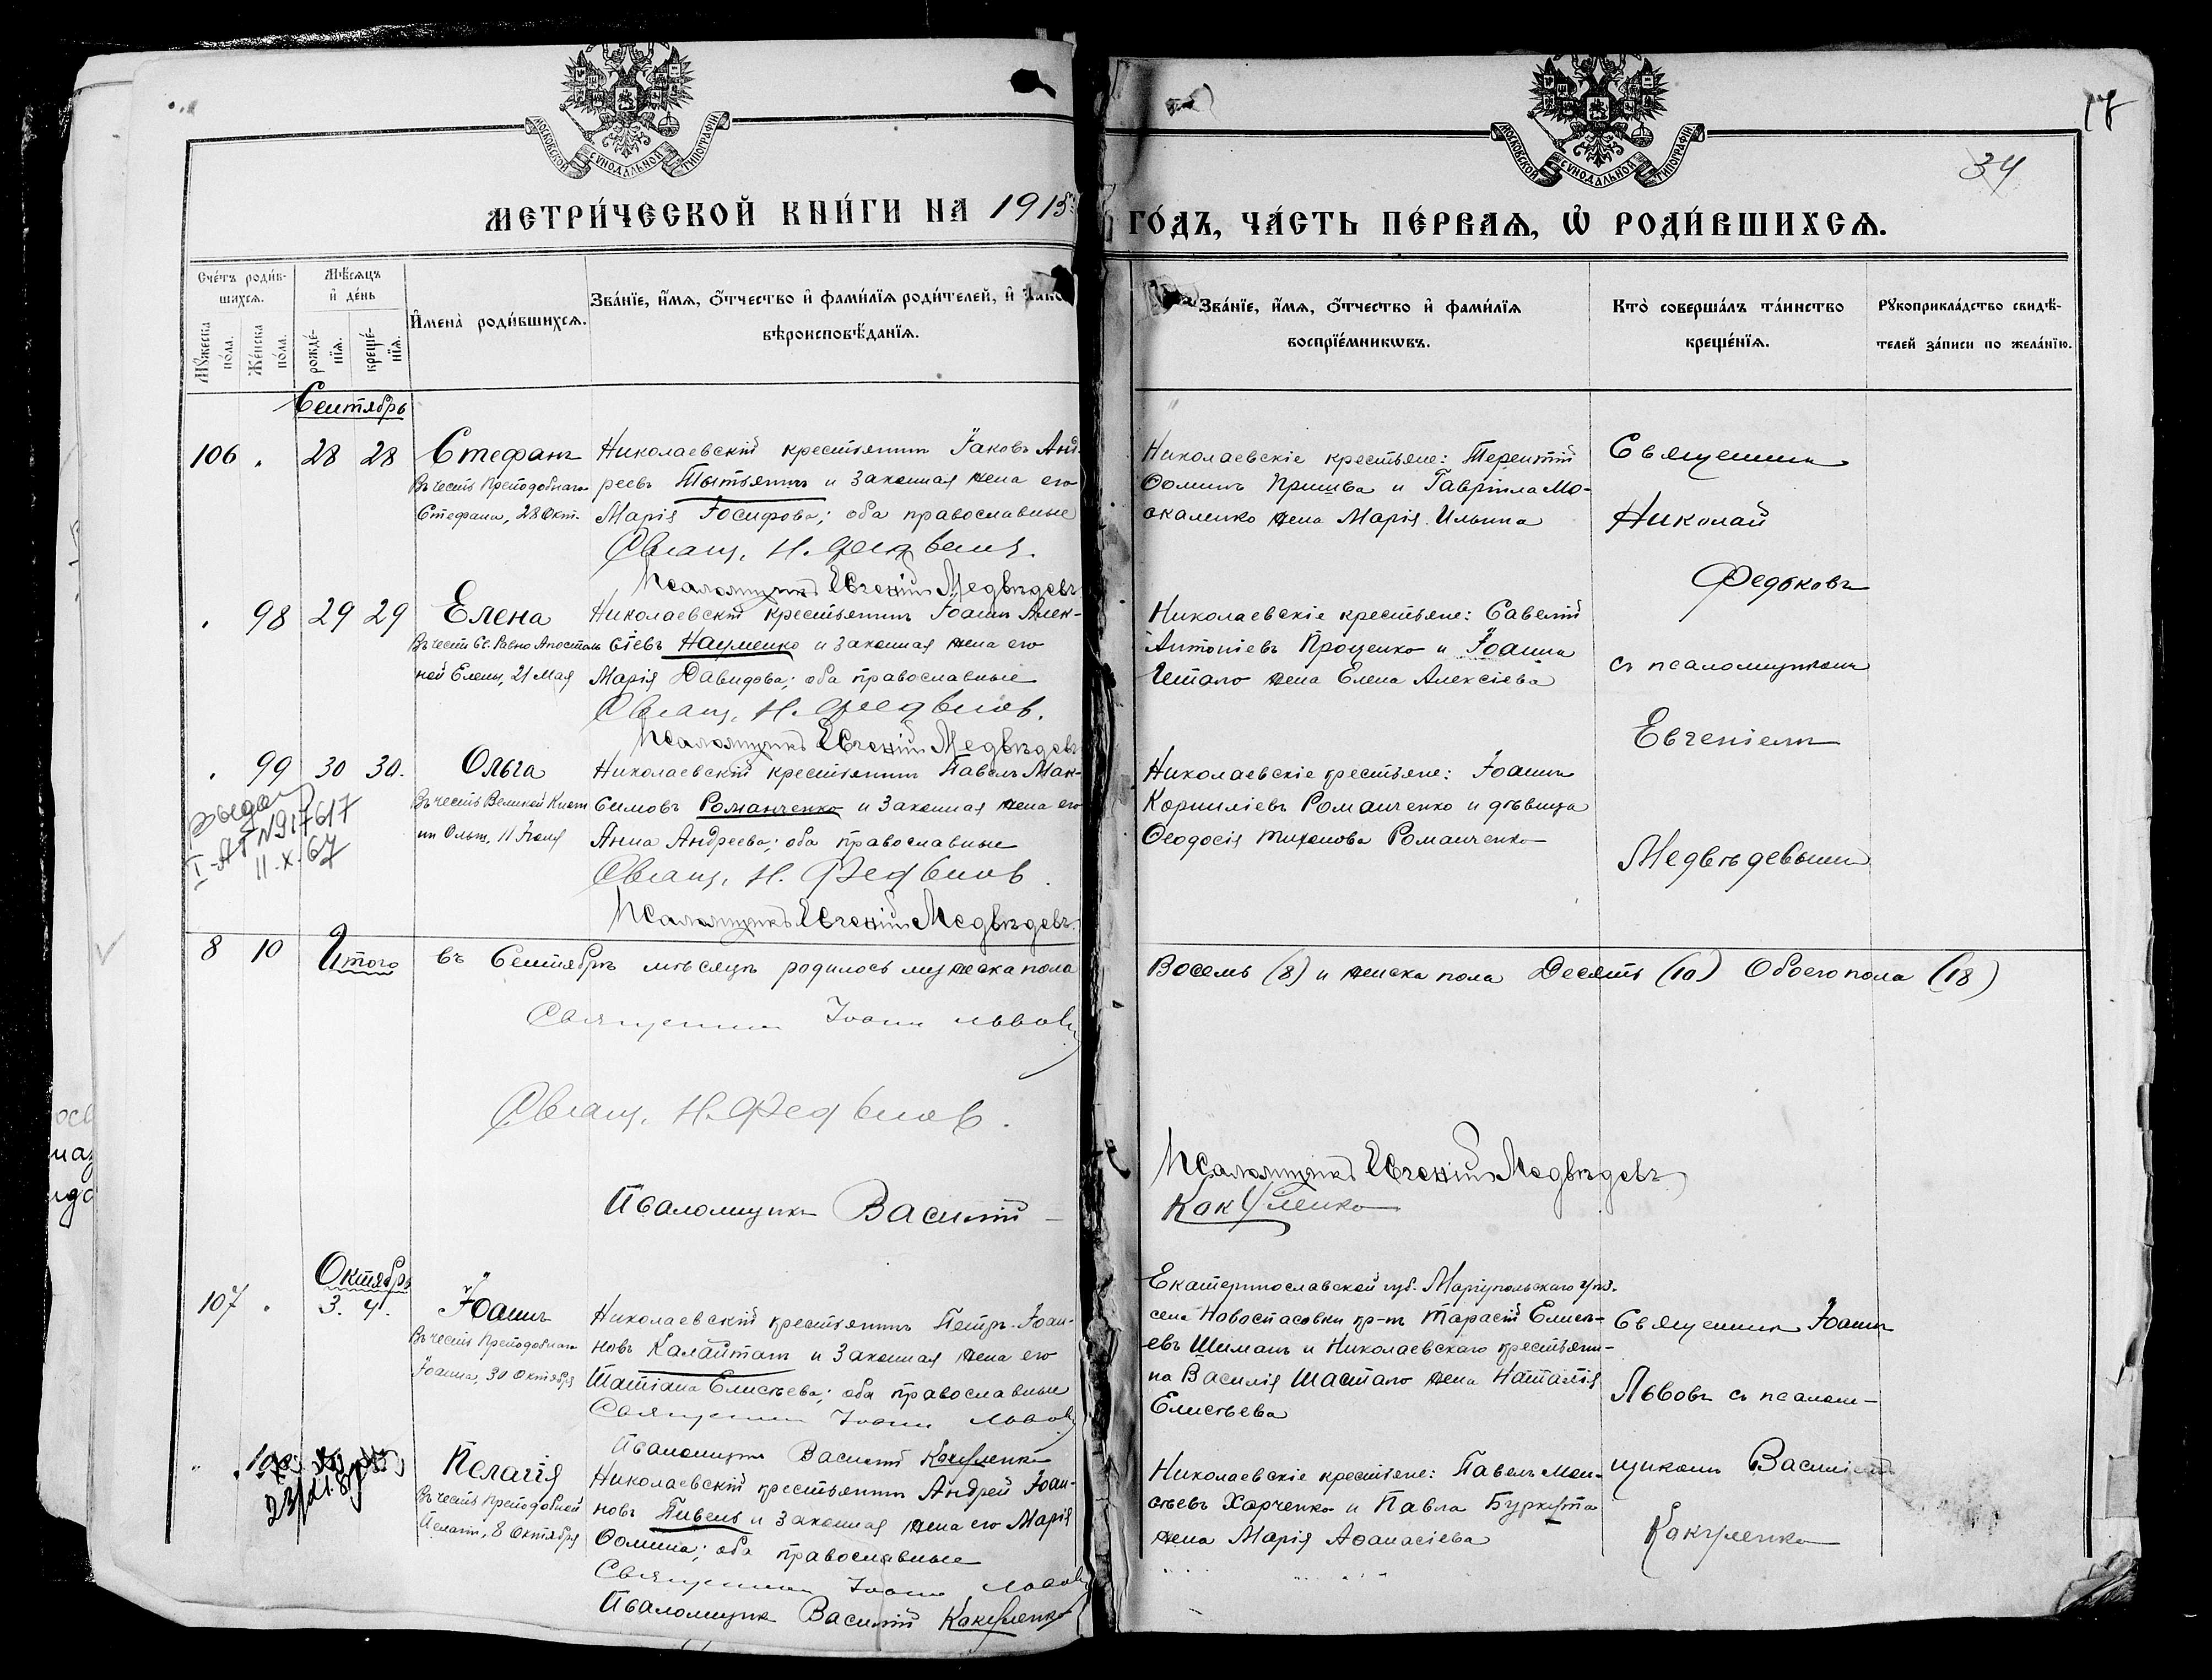 МОСКОВСКОЙ СУНОДАЛЬНОЙ ТИПОГРАФІИ
МОСКОВСКОЙ СУНОДАЛЬНОЙ ТИПОГРАФІИ
34
МЕТРИ́ЧЕСКОЙ КНИ́ГИ НА 1915
ГО́ДЪ, ЧА́СТЬ ПЕ́РВАѦ, Ѡ҆ РОДИ́ВШИХСѦ.
Сче́тъ роди́в-
шихсѧ.
Мꙋжеска по́ла.
Же́нска по́ла.
Мѣ́сѧцъ
и҆ де́нь
рожде́-
нїѧ.
креще́-
нїѧ.
И҆мена̀ роди́вшихсѧ.
Зва́нїе, и҆́мѧ, ѻ҆́тчество и҆ фами́лїѧ роди́телей, и҆
вѣроисповѣ́данїѧ.
Зва́нїе, и҆́мѧ, ѻ҆́тчество и҆ фами́лїѧ
воспрїе́мникѡвъ.
Кто̀ соверша́лъ та́инство
креще́нїѧ.
Рꙋкоприкла́дство свидѣ́-
телей за́писи по жела́нїю.
Сентябрь
106 28 28 Стефанъ
Въ честь Преподобнаго
Стефана, 28 Окт.
Николаевскій крестьянинъ Іаковъ Анд-
реевъ Тытьянинъ и законная жена его
Марія Іосифова; оба православные
Свящ. Н. Федьковъ.
Псаломщикъ Евгеній Медвѣдевъ
Николаевскіе крестьяне: Терентій
Ѳоминъ и Гавріила Мо-
жена Марія Ильина
Священникъ
Николай
Федьковъ
съ псаломщикомъ
Евгеніемъ
Медвѣдевымъ
98 29 29 Елена
Въ честь Св. Равно Апостоль
ной Елены, 21 Мая
Николаевскій крестьянинъ Іоаннъ Алек-
сіевъ Науменко и законная жена его
Марія Давидова; оба православные
Свящ. Н. Федьковъ.
Псаломщикъ Евгеній Медвѣдевъ
Николаевскіе крестьяне: Савелій
Антоніевъ Проценко и Іоанна
жена Елена Алексіева
99 30 30. Ольга
Въ честь Великой Княги
ни Ольги, 11 Іюля
I-АГ №917617
11.X.67
Николаевскій крестьянинъ Павелъ Мак-
симовъ Романченко и законная жена его
Анна Андреева; оба православные
Свящ. Н. Федьковъ.
Псаломщикъ Евгеній Медвѣдевъ
Николаевскіе крестьяне: Іоаннъ
Корниліевъ Романченко и дѣвица
Ѳеодосія Тихонова Романченко
8 10 Итого въ Сентябрѣ мѣсяцѣ родилось мужеска пола
Восемь (8) и женска пола Десять (10) Обоего пола (18)
Священникъ Іоаннъ Львовъ
Свящ. Н. Федьковъ.
Псаломщикъ Евгеній Медвѣдевъ
Псаломщикъ Василій
Какуленко
Октябрь
107 3. 4. Іоаннъ
Въ честь Преподобнаго
Іоанна, 30 Октября
Николаевскій крестьянинъ Петръ Іоан-
новъ Калайтанъ и законная жена его
Татіана Елисѣева; оба православные
Священникъ Іоаннъ Львовъ
Псаломщикъ Василій Какуленко
Екатеринославской губ. Маріупольскаго уѣз.
села Новоспасовки кр-нъ Тарасій Елисѣ-
евъ Шиманъ и Николаевскаго крестьяни-
на Василія жена Наталія
Елисѣева
Священникъ Іоаннъ
Львовъ съ псалом-
щикомъ Василіемъ
Какуленко
Пелагія
Въ честь Преподобной
Пелагіи, 8 Октября
Николаевскій крестьянинъ Андрей Іоан-
новъ Пивень и законная жена его Марія
Ѳомина; оба православные
Священникъ Іоаннъ Львовъ
Псаломщикъ Василій Какуленко
Николаевскіе крестьяне: Павелъ Мои-
сѣевъ Харченко и Павла Буркута
жена Марія Аѳанасіева